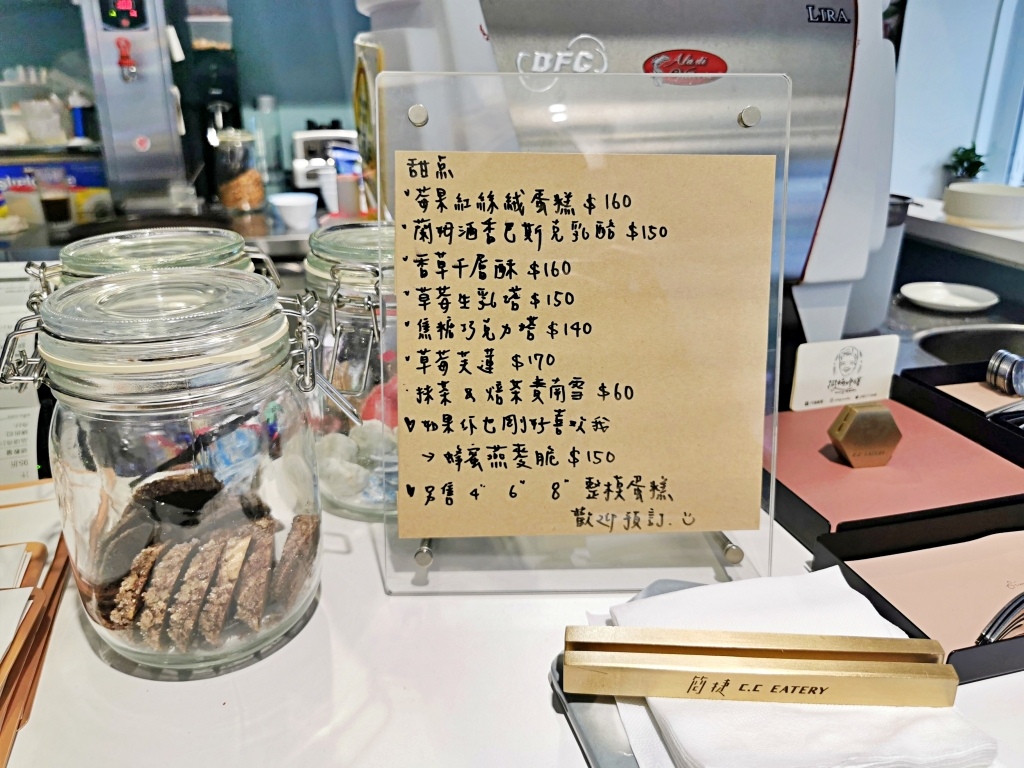 LIRA
BFC
甜点
莓果紅絲絨蛋糕 $160
蘭姆酒香巴斯克乳酪 $150
香草千層酥 $160
草莓生乳塔 $150
焦糖巧克力塔 $140
草莓芙蓮 $170
抹茶 & 焙茶費南雪 $60
♥如果你也剛好喜歡我
→ 蜂蜜燕麥脆 $150
♥另售 4" 6" 8" 整模蛋糕
歡迎預訂.
簡捷 C.C EATERY